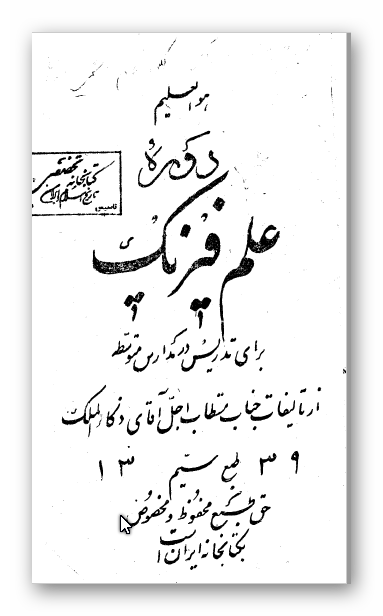 هو العلیم
دوره
علم فیزیک
برای تدریس در مدارس متوسطه
از تألیفات جناب مستطاب اجل آقای ذکاء الملک
۱۳ طبع سیّم ۳۹
حق طبع محفوظ و مخصوص
بکتابخانه ایران است
کتابخانه تخصصی
تاریخ اسلام و ایران